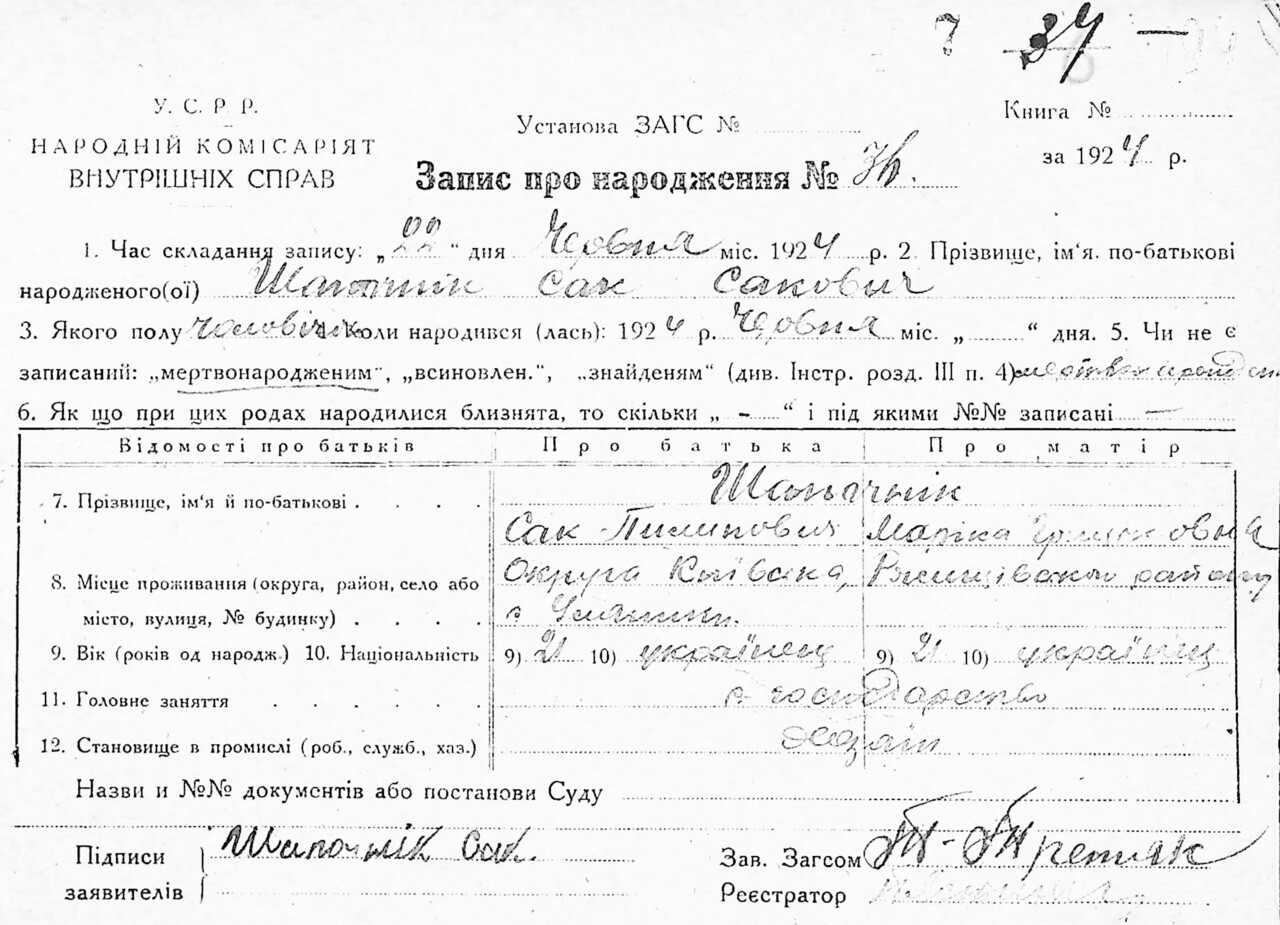 7 34 —
У. С. Р. Р.
НАРОДНІЙ КОМІСАРІЯТ
ВНУТРІШНІХ СПРАВ
Установа ЗАГС №
Книга №
за 1924 р.
Запис про народження №
1. Час складання запису: „22“ дня Червня міс. 1924 р. 2. Прізвище, ім'я. по-батькові
народженого(ої) Шапочнік Сак Сакович
3. Якого полу чоловічік коли народився (лась): 1924 р. Червня міс. „ “ дня. 5. Чи не є
записаний: „мертвонародженим“, „всиновлен.“, „знайденям“ (див. Інстр. розд. III п. 4)
6. Як що при цих родах народилися близнята, то скільки „ - “ і під якими №№ записані —
Відомості про батьків Про батька Про матір
7. Прізвище, ім'я й по-батькові . . . . Шапочнік
Сак Пилипович Марійка
8. Місце проживання (округа, район, село або Округа Київська, району
місто, вулиця, № будинку) . . . . с.
9. Вік (років од народж.) 10. Національність 9) 21 10) українец 9) 21 10) українец
11. Головне заняття . . . . . . с. господарство
12. Становище в промислі (роб., служб., хаз.) Хазаін
Назви и №№ документів або постанови Суду
Підписи Шапочнік Сак.
заявителів
Зав. Загсом Третяк
Реєстратор